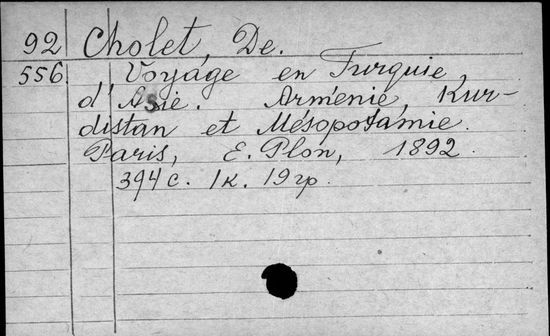 92 Cholet, De.
556 Voyage en Turquie
d'Asie. Arménie, Kur-
distan et Mésopotamie.
Paris, E. Plon, 1892
394 с. 1к. 19гр.